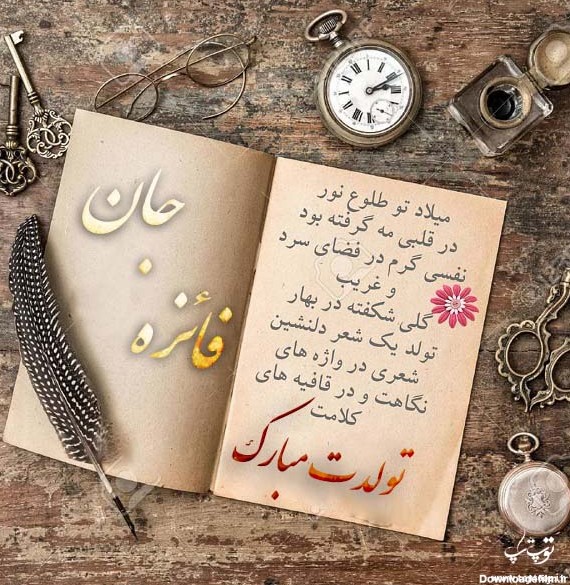 فائزه
جان
میلاد تو طلوع نور
در قلبی مه گرفته بود
نفسی گرم در فضای سرد
و غریب
گلی شکفته در بهار
تولد یک شعر دلنشین
شعری در واژه های
نگاهت و در قافیه های
کلامت
تولدت مبارک
توپ تاپ